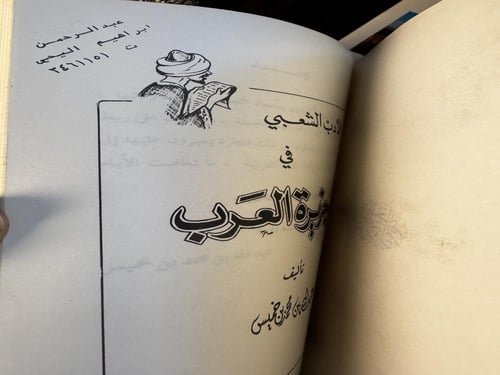 عبد الرحمن
ابراهيم اليحيى
ت ٣٤٦١١٥١
الأدب الشعبي
في
جزيرة العرب
تأليف
عبدالله بن محمد بن خميس